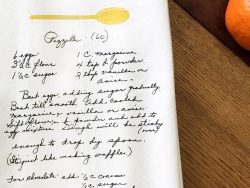 Pizzelle - (60)
6 eggs 1 C margarine
3 1/2 C flour 4 tsp b powder
1 1/2 C sugar 2 tbsp vanilla or
anise.
Beat eggs, adding sugar gradually.
Beat till smooth. Add cooled
margarine, vanilla or anise
Sift flour & b powder and add to
egg mixture. Dough will be sticky
(over)
enough to drop by spoon.
like making waffles)
For chocolate add 1/2 C cocoa
1/2 C sugar